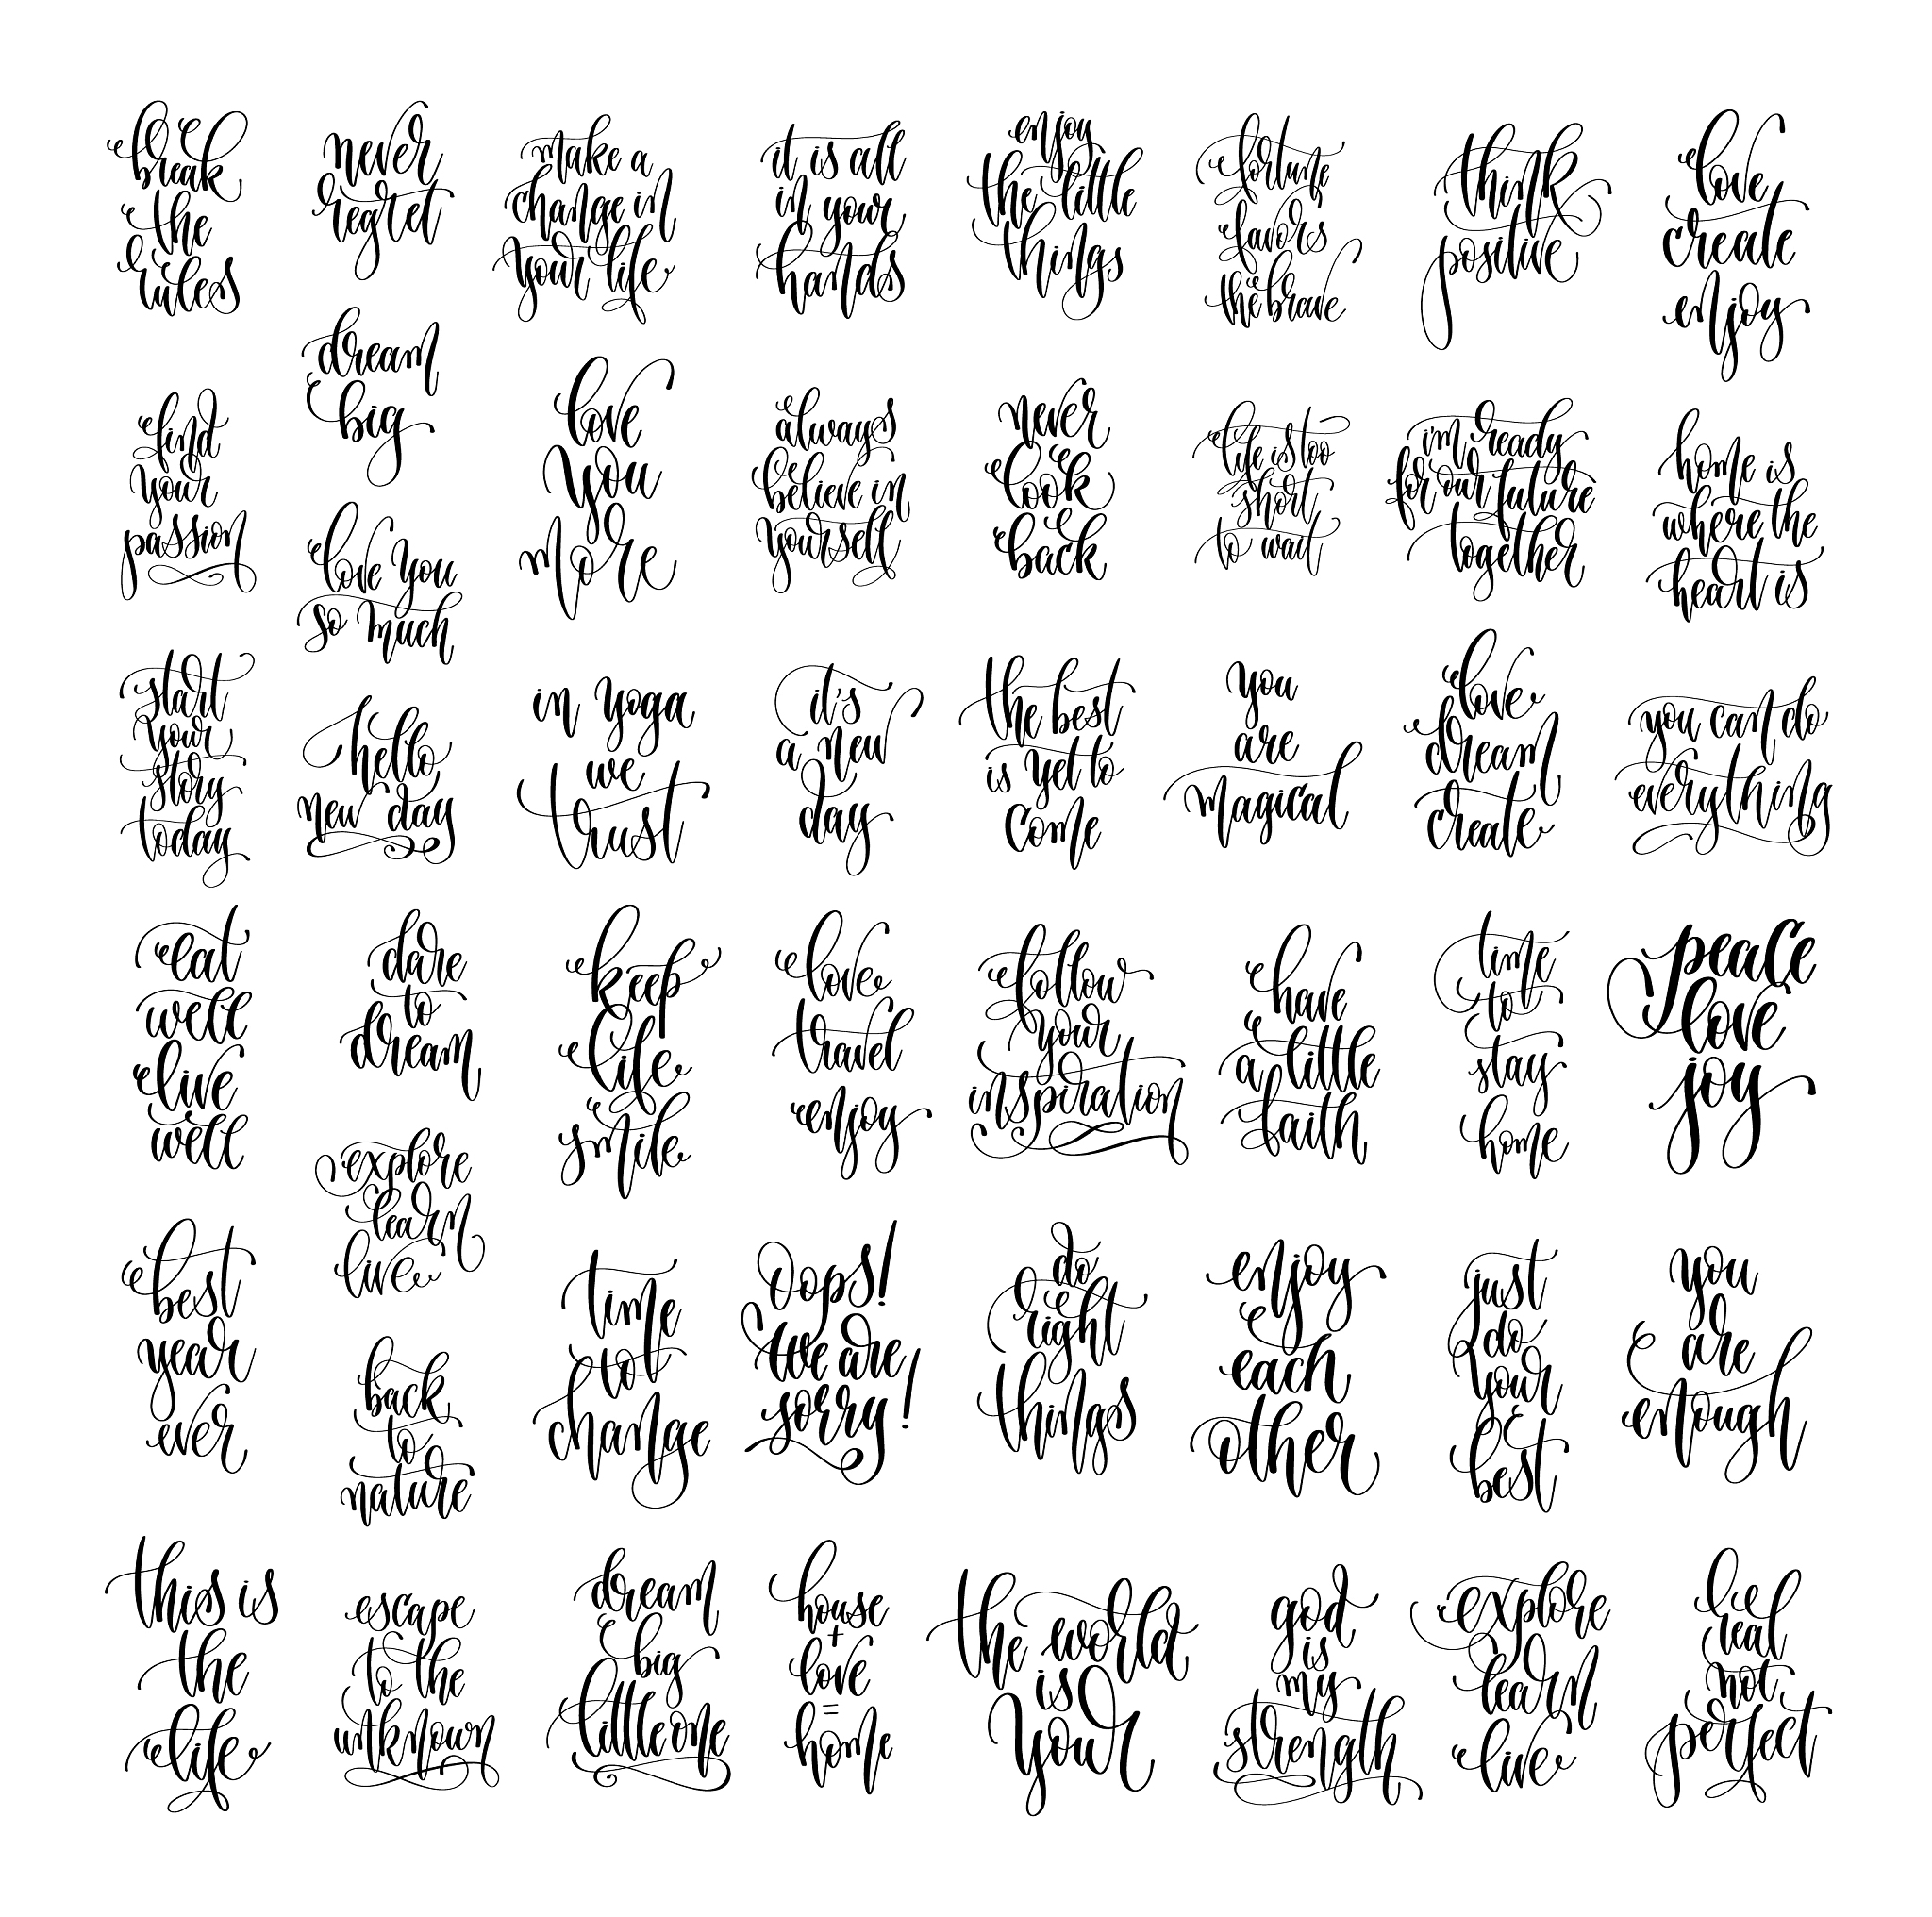 break
the
rules
never
regret
make a
change in
your life
it is all
in your
hands
enjoy
the little
things
fortune
favors
the brave
think
positive
love
create
enjoy
dream
big
find
your
passion
love
you
more
always
believe in
yourself
never
look
back
life is too
short
to wait
i'm ready
for our future
together
home is
where the
heart is
love you
so much
start
your
story
today
hello
new day
in yoga
we
trust
it's
a new
day
the best
is yet to
come
you
are
magical
love
dream
create
you can do
everything
eat
well
live
well
dare
to
dream
keep
life
smile
love
travel
enjoy
follow
your
inspiration
have
a little
faith
time
to
stay
home
peace
love
joy
explore
learn
live
best
year
ever
time
to
change
Oops!
We are
sorry!
do
right
things
enjoy
each
other
just
do
your
best
you
are
enough
back
to
nature
this is
the
life
escape
to the
unknown
dream
big
little one
house
+
love
=
home
the world
is
your
god
is
my
strength
explore
learn
live
real
not
perfect